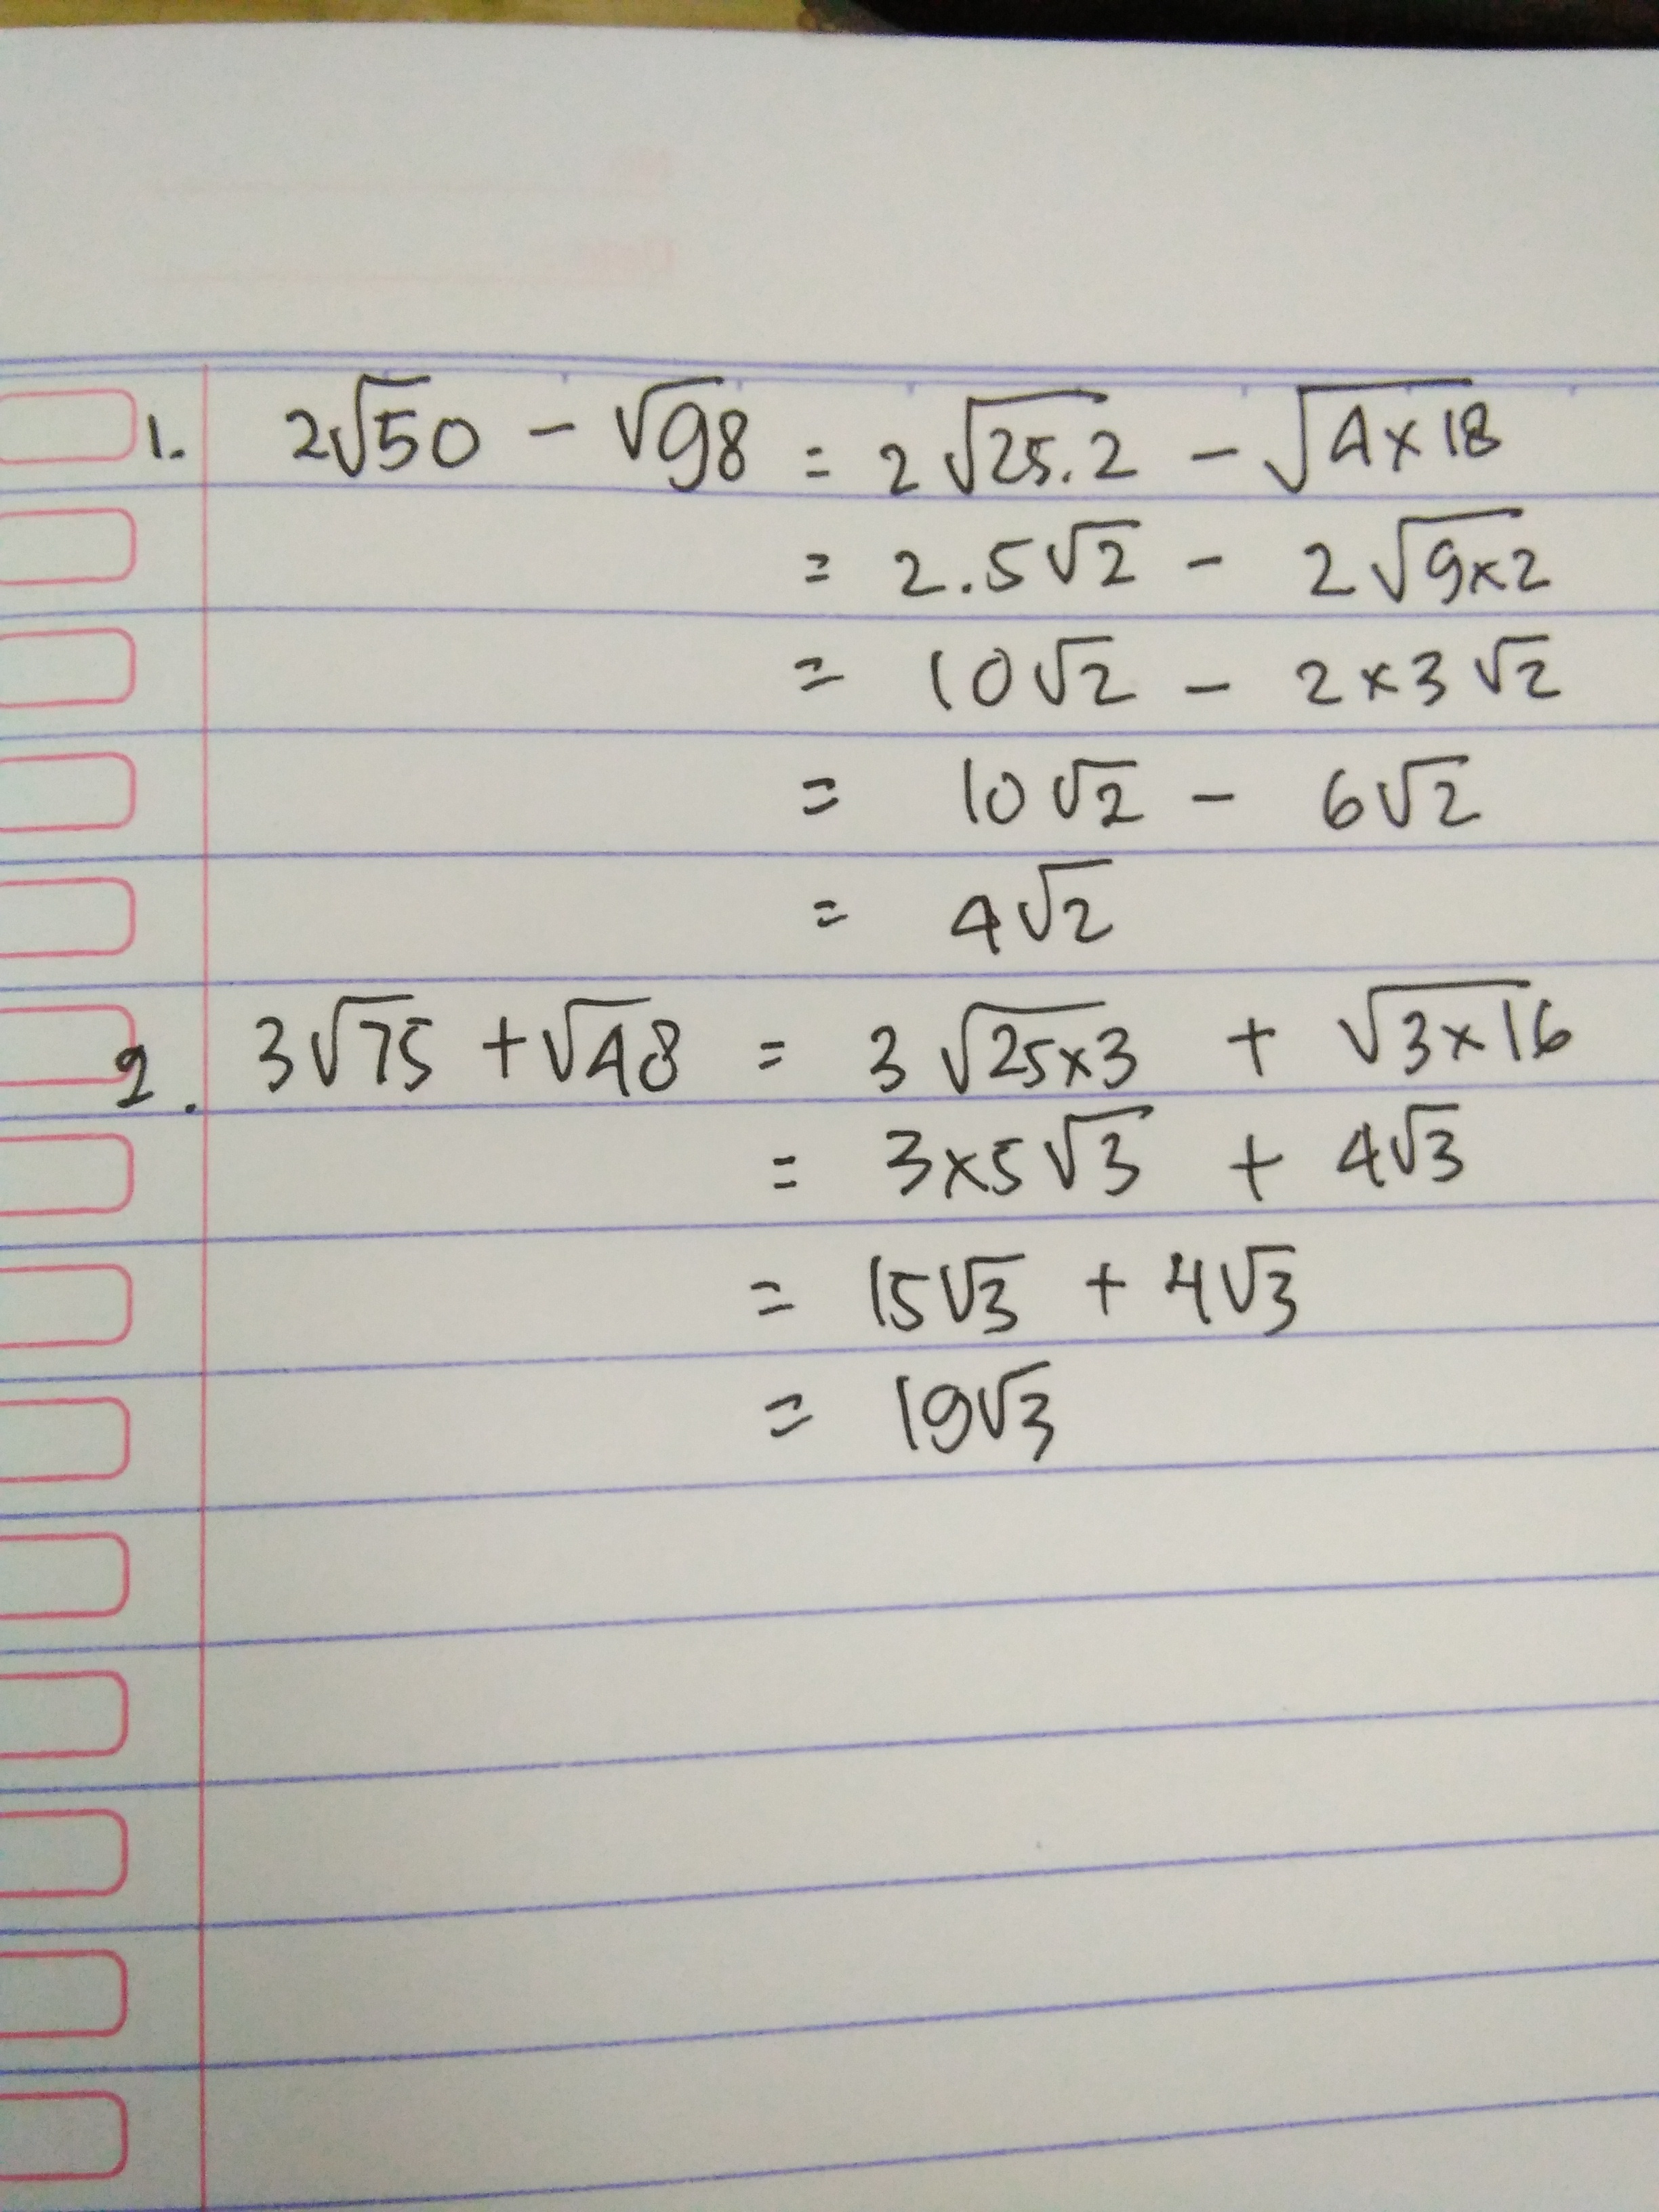 1. 2√50 - √98 = 2√25.2 - √4×18
= 2.5√2 - 2√9×2
= 10√2 - 2×3√2
= 10√2 - 6√2
= 4√2
2. 3√75 + √48 = 3√25×3 + √3×16
= 3×5√3 + 4√3
= 15√3 + 4√3
= 19√3